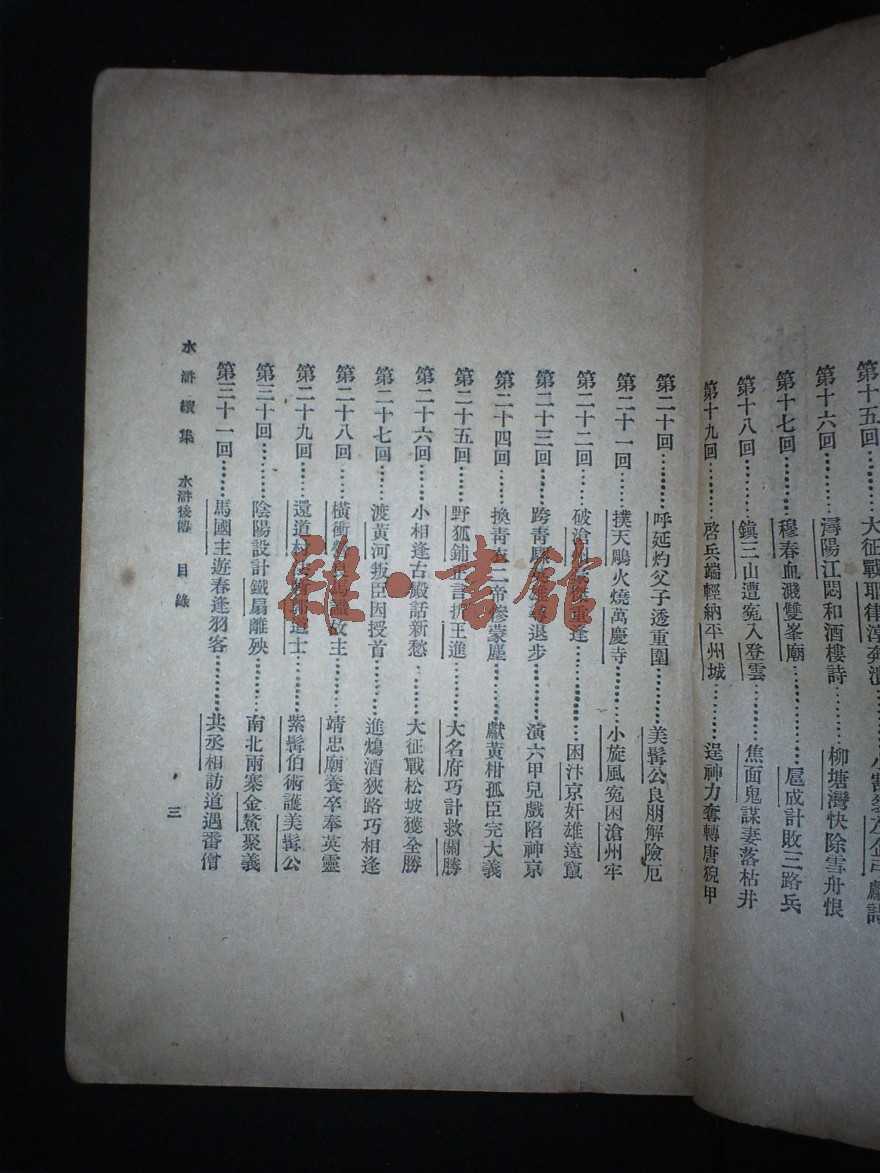 第十五回……大征戰耶律淳奔潰……
第十六回………潯陽江悶和酒樓詩………柳塘灣快除雪舟恨
第十七回………穆春血濺雙峯廟………扈成計敗三路兵
第十八回………鎮三山遭冤入登雲………焦面鬼謀妻落枯井
第十九回………啓兵端輕納平州城………逞神力奪轉唐猊甲
第二十回………呼延灼父子透重圍………美髯公良朋解險厄
第二十一回……撲天鵰火燒萬慶寺………小旋風冤困滄州牢
第二十二回……破滄重逢………困汴京奸雄遠竄
第二十三回……跨青退步………演六甲兒戲陷神京
第二十四回……換青二帝慘蒙塵………獻黃柑孤臣完大義
第二十五回……野狐鋪正言折王進………大名府巧計救關勝
第二十六回……小相逢古殿話新愁………大征戰松坡獲全勝
第二十七回……渡黃河叛臣因授首………進鴆酒狹路巧相逢
第二十八回……橫衝故主………靖忠廟養卒奉英靈
第二十九回……還道村郭道士………紫髯伯術護美髯公
第三十回………陰陽設計鐵扇離殃………南北兩寨金鰲聚義
第三十一回……馬國主遊春逢羽客………共丞相訪道遇番僧
水滸續集 水滸後傳 目錄 三
雜·書館